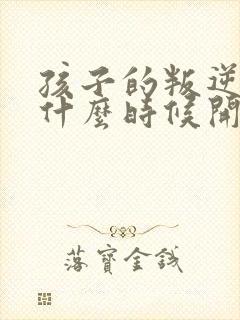 孩子的叛逆
什麼時候開
落寶金錢